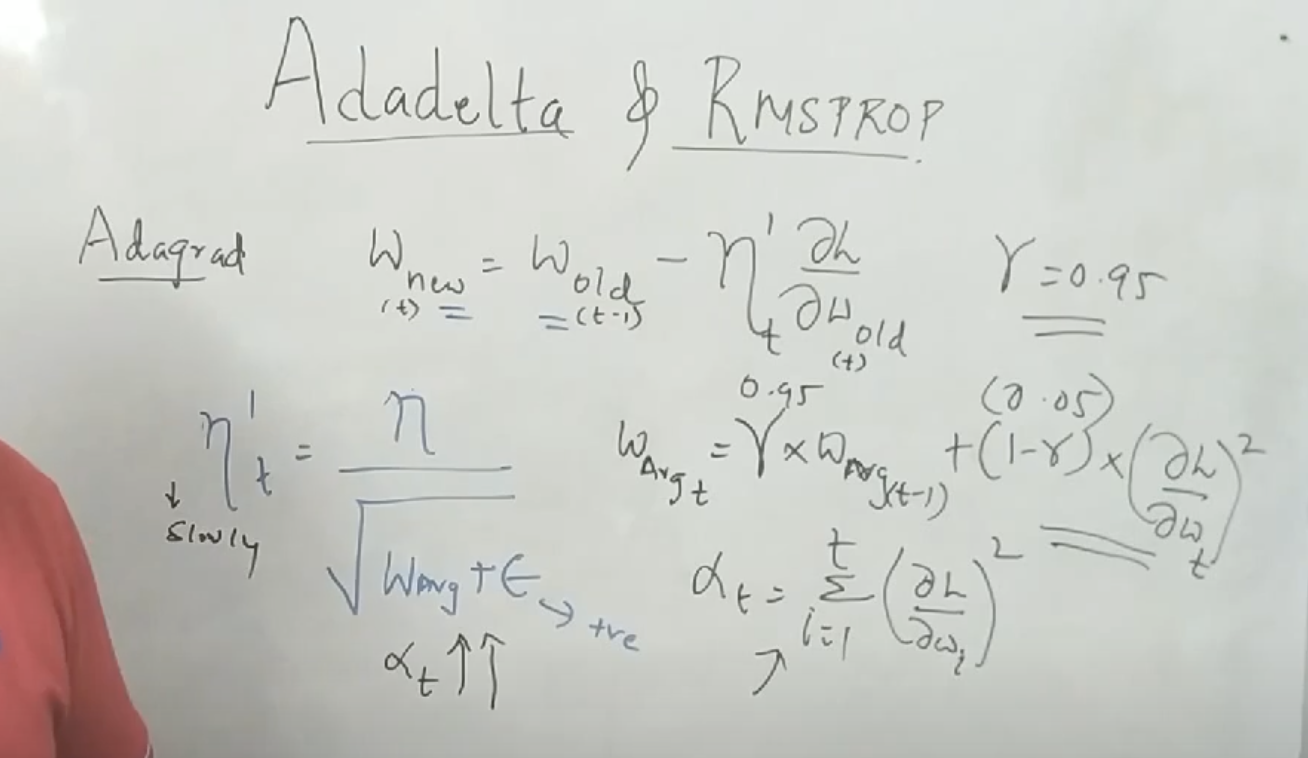 Adadelta & RMSPROP
Adagrad W_new (t) = W_old (t-1) - η'_t ∂L/∂w_old (t) γ = 0.95
0.95 (0.05)
η'_t = η / √(W_Avg + ϵ) → +ve
↓ slowly
W_Avg_t = γ × W_Avg(t-1) + (1-γ) × (∂L/∂w_t)²
α_t = Σ_{i=1}^{t} (∂L/∂w_i)²
α_t ↑↑